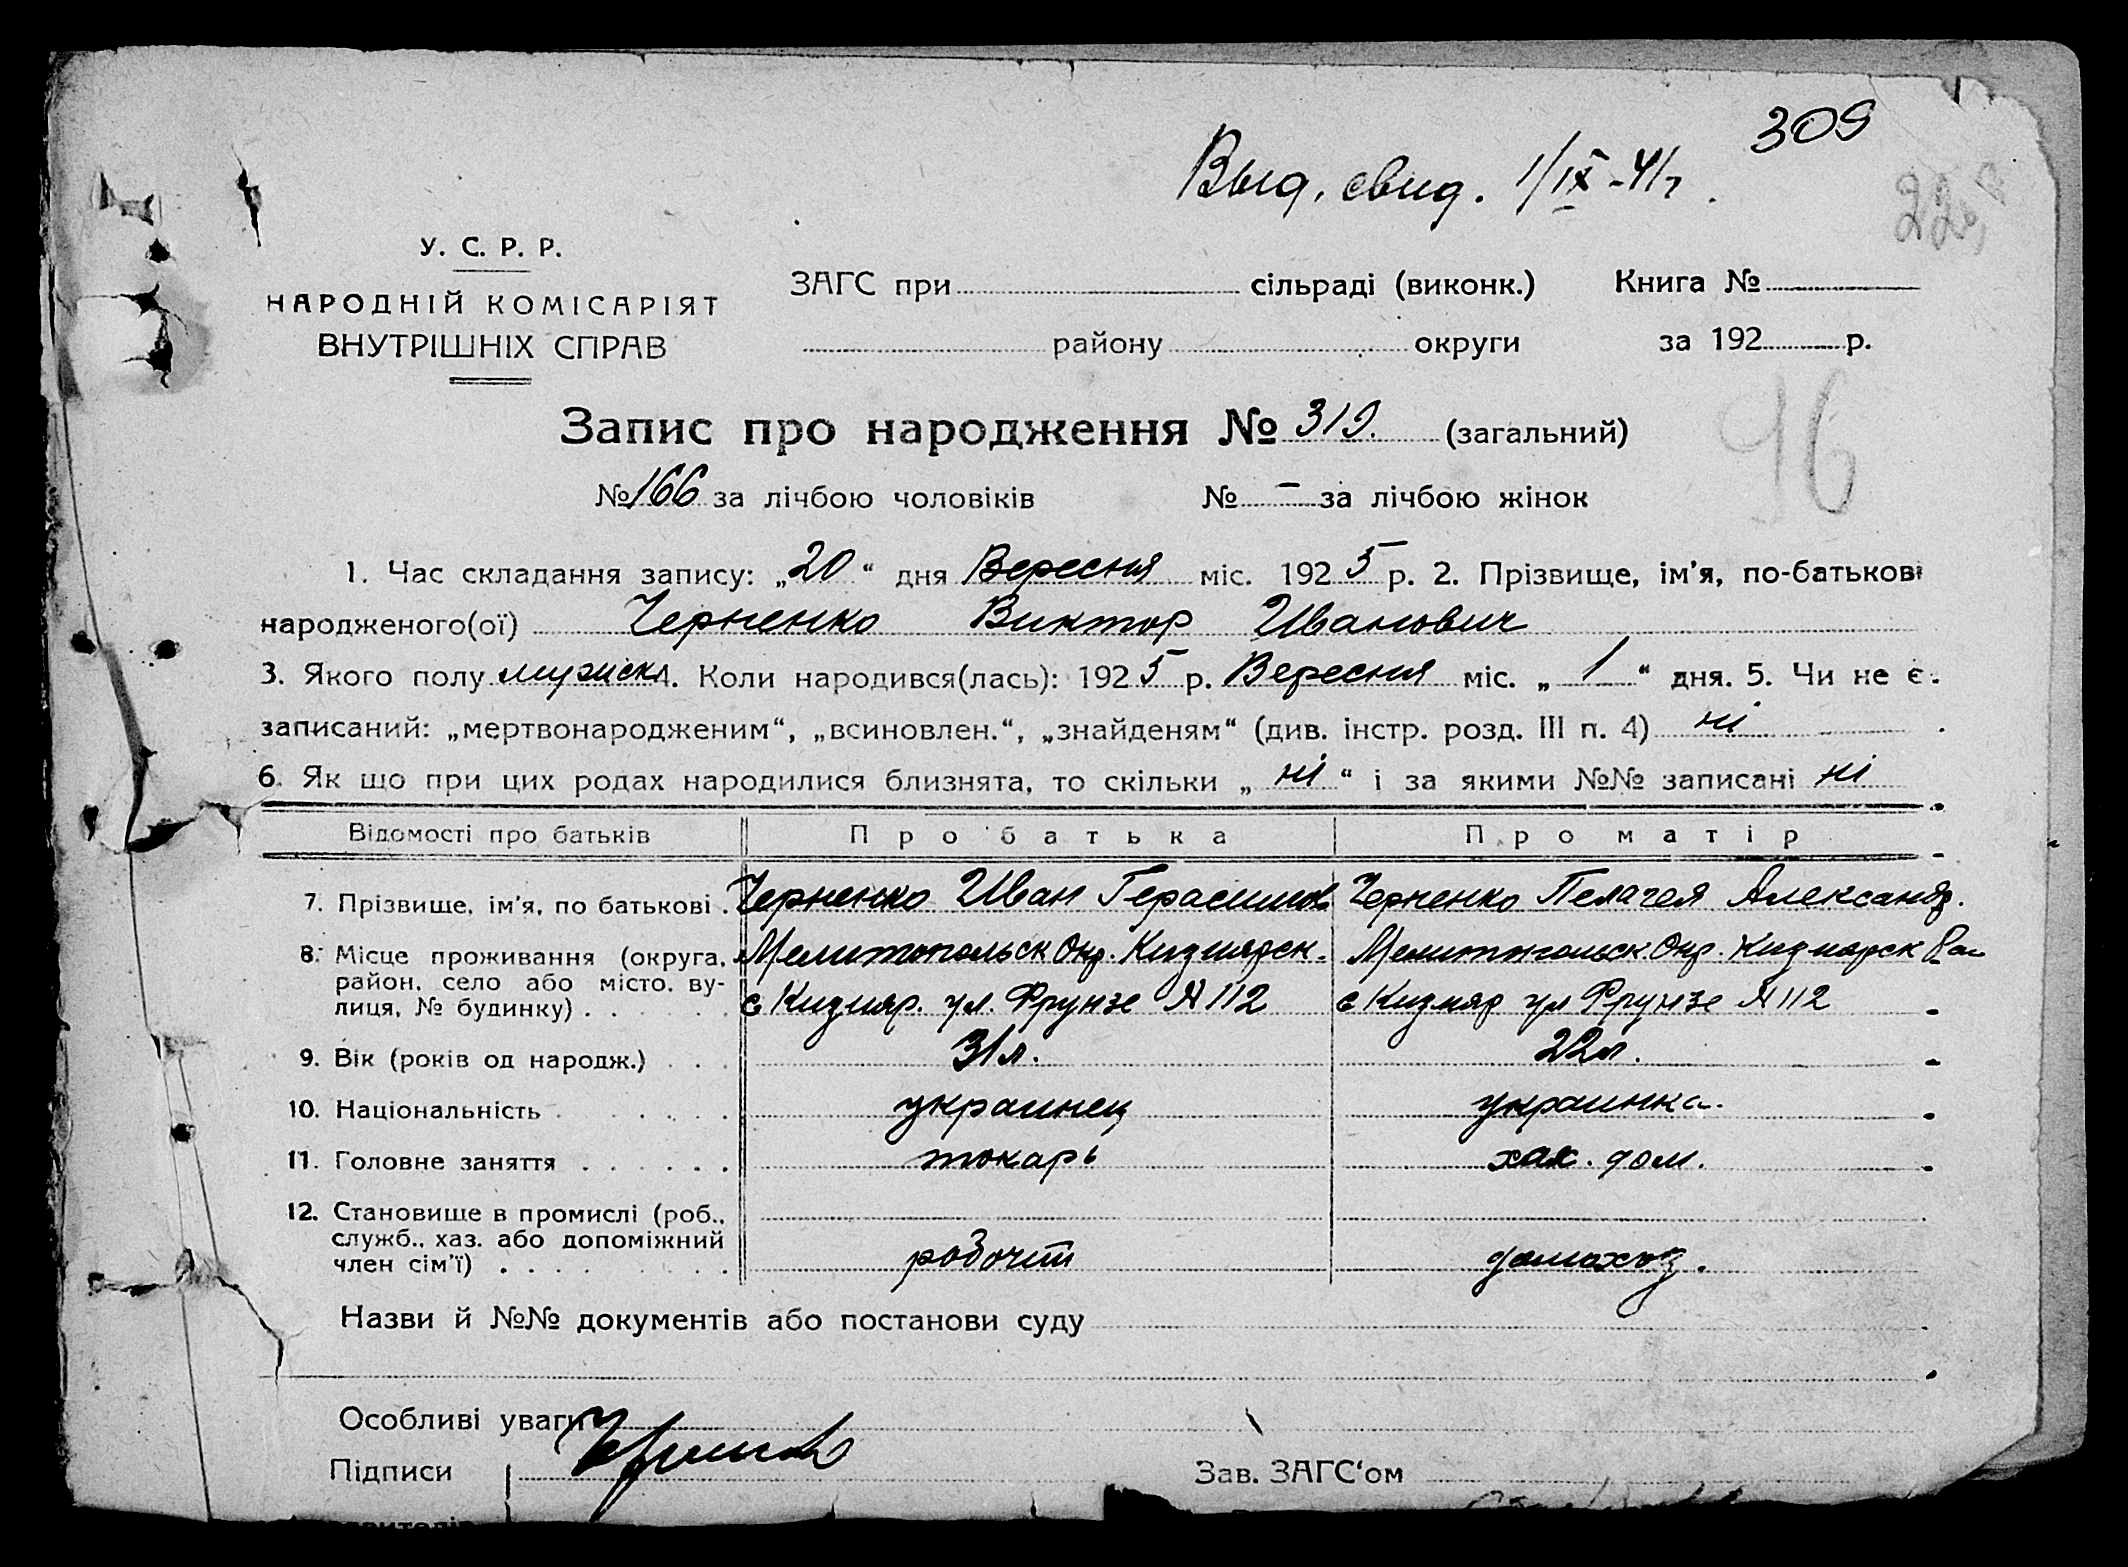 309
Выд. свид. 1/IX-41 г.
22
У. С. Р. Р.
НАРОДНІЙ КОМІСАРІЯТ
ВНУТРІШНІХ СПРАВ
ЗАГС при сільраді (виконк.) Книга №
району округи за 192 р.
Запис про народження № 319. (загальний)
96
№ 166 за лічбою чоловіків № – за лічбою жінок
1. Час складання запису: „20“ дня Вересня міс. 1925 р. 2. Прізвище, ім'я, по-батькові
народженого(ої) Черненко Виктор Иванович
3. Якого полу мужск 4. Коли народився(лась): 1925 р. Вересня міс. „1“ дня. 5. Чи не є
записаний: „мертвонародженим“, „всиновлен.“, „знайденям“ (див. інстр. розд. III п. 4) ні
6. Як що при цих родах народилися близнята, то скільки „ні“ і за якими №№ записані ні
Відомості про батьків Про батька Про матір
7. Прізвище, ім'я, по батькові . Черненко Иван Герасимов Черненко Пелагея Александр.
8. Місце проживання (округа, Мелитопольск Окр. Кизиярск. Мелитопольск Окр. Кизиярск Рай
район, село або місто, ву-
лиця, № будинку) . . . . . . с Кизияр. ул. Фрунзе № 112 с Кизияр ул Фрунзе № 112
9. Вік (років од народж.) . . . 31 л. 22 л.
10. Національність . . . . . . украинец украинка.
11. Головне заняття . . . . . . токарь хаз. дом.
12. Становище в промислі (роб.,
служб., хаз. або допоміжний
член сім'ї) . . . . . . . . робочий домахоз.
Назви й №№ документів або постанови суду
Особливі уваги
Підписи Зав. ЗАГС'ом